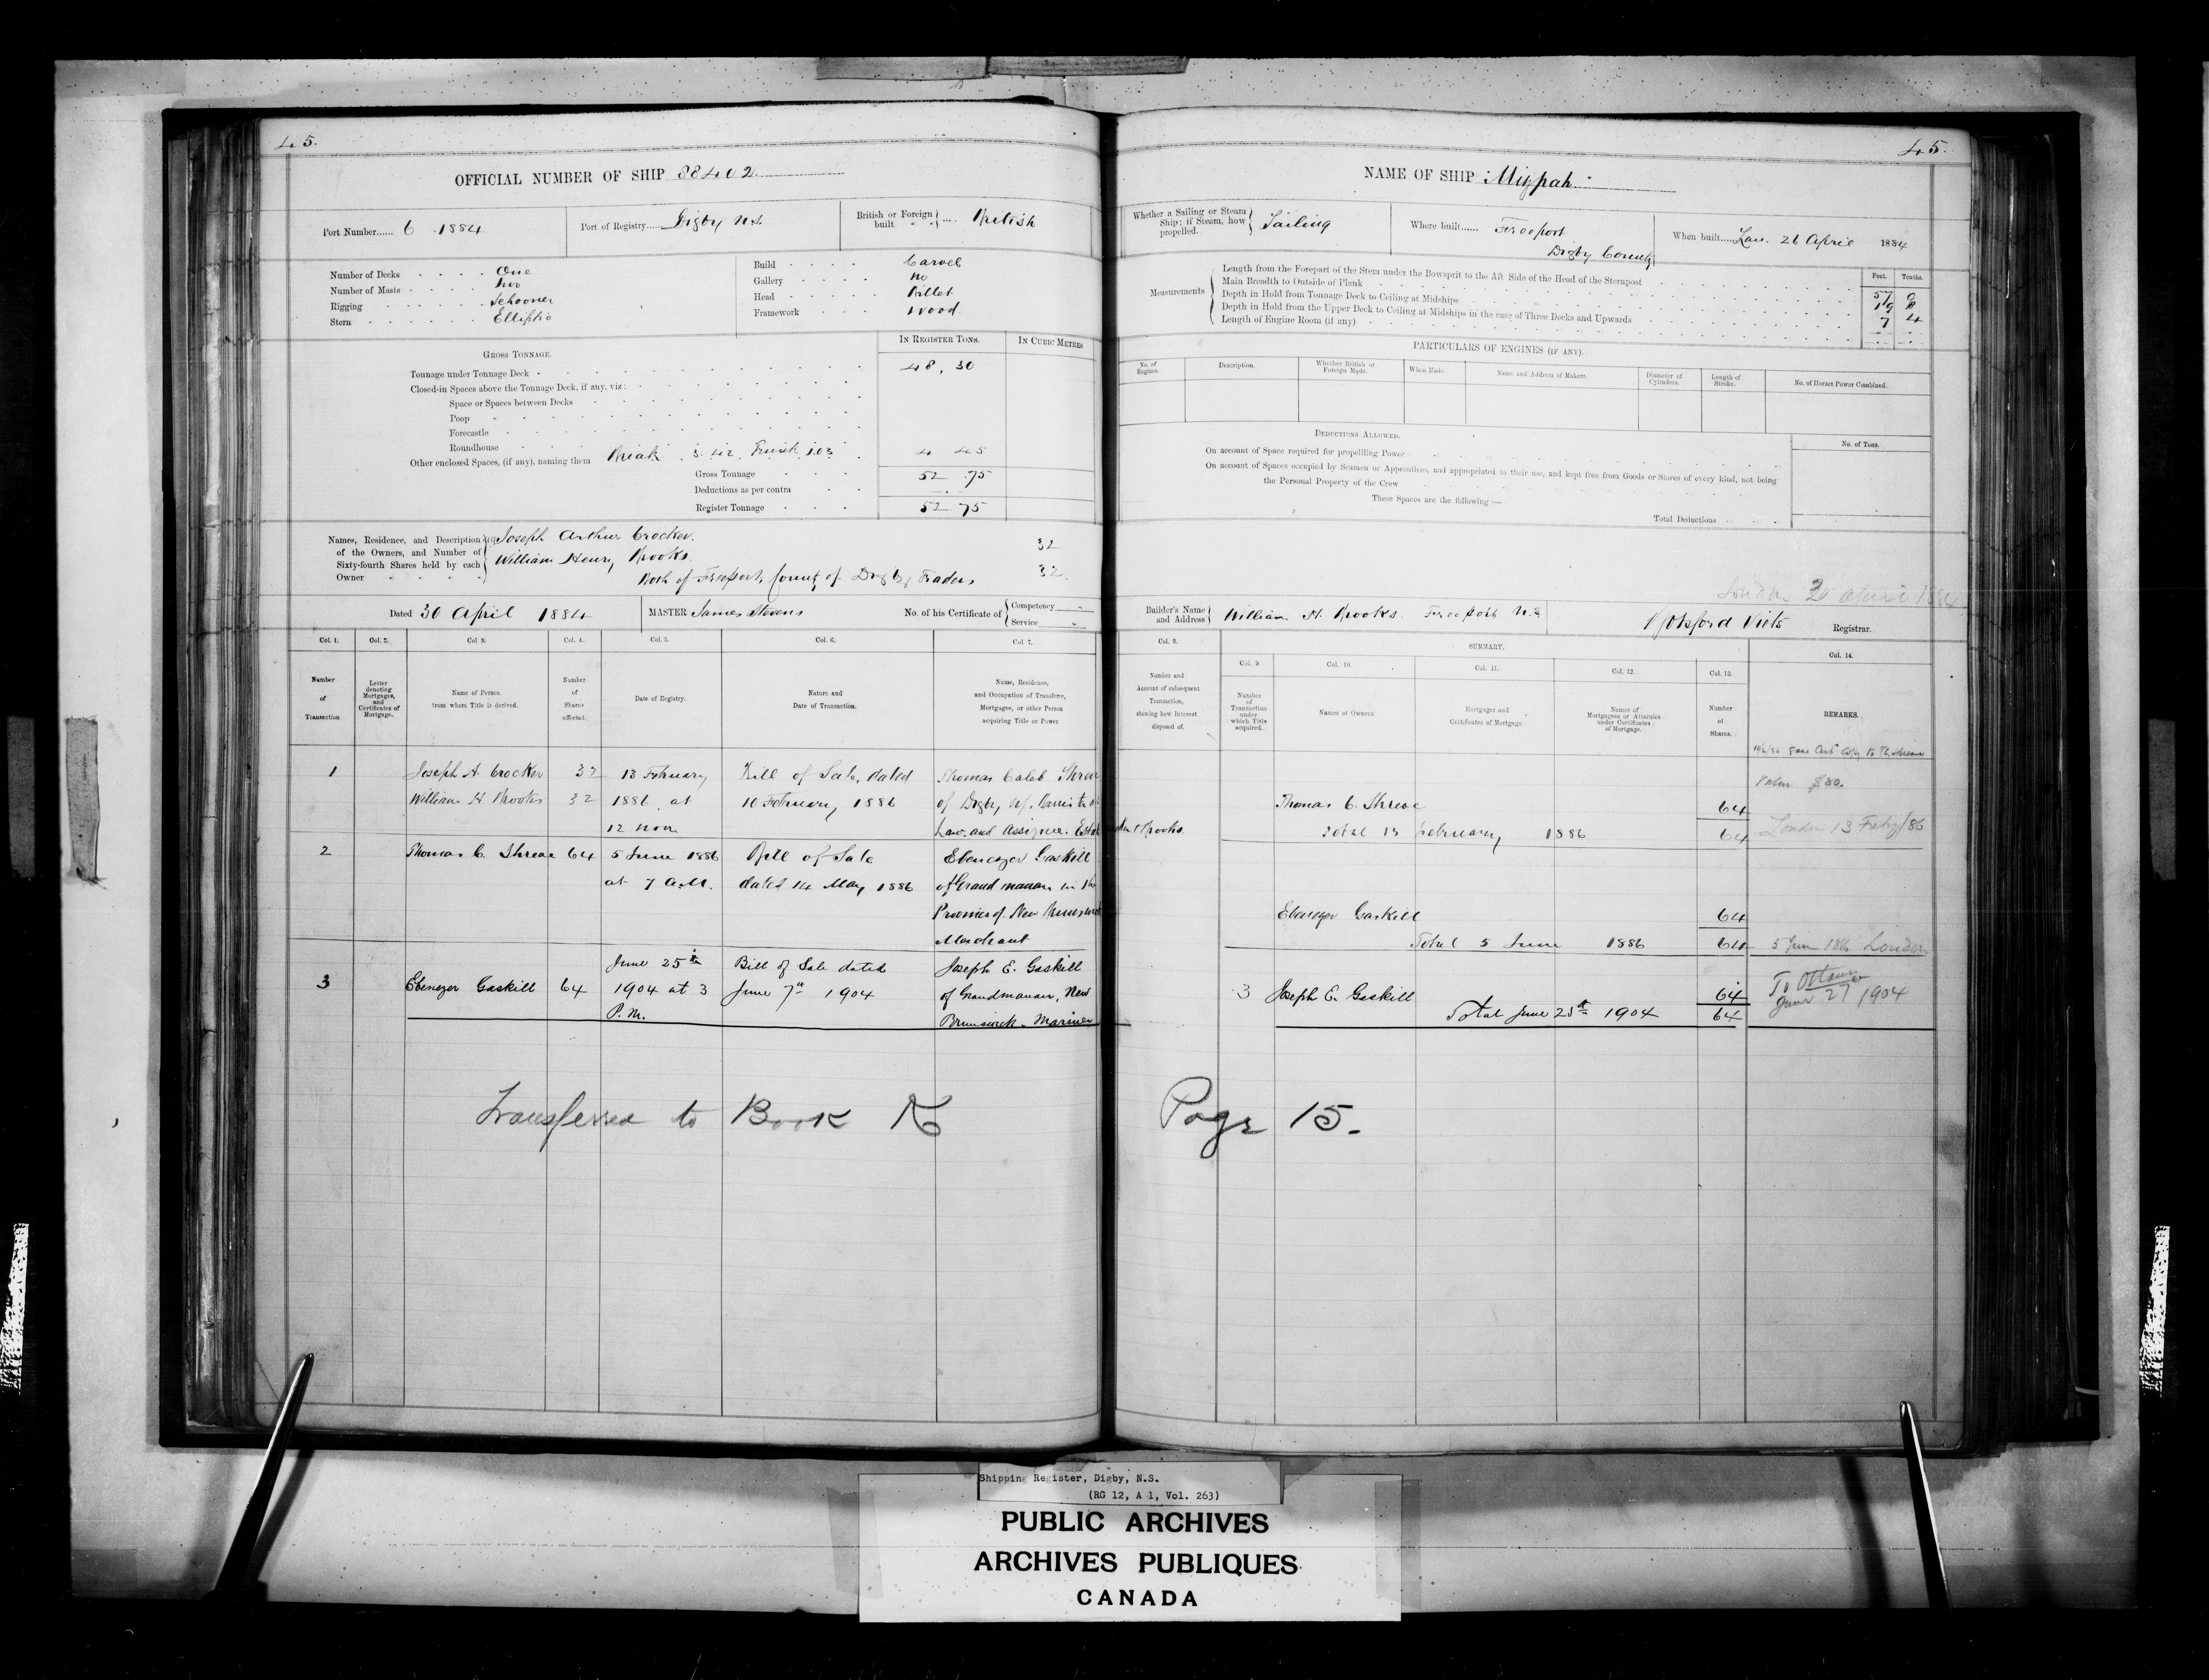 45.
OFFICIAL NUMBER OF SHIP 88402
Port Number...... 6 . 1884
Port of Registry...... Digby N.S.
British or Foreign built .... British
Number of Decks One
Number of Masts Two
Rigging Schooner
Stern Elliptic
Build Carvel
Gallery No
Head Billet
Framework Wood.
GROSS TONNAGE.
IN REGISTER TONS.
IN CUBIC METRES
Tonnage under Tonnage Deck 48. 30
Closed-in Spaces above the Tonnage Deck, if any, viz:
Space or Spaces between Decks
Poop
Forecastle
Roundhouse
Other enclosed Spaces, (if any), naming them Break 3.42 Trunk 1.03 4 45
Gross Tonnage 52 .75
Deductions as per contra
Register Tonnage 52 75
Names, Residence, and Description of the Owners, and Number of Sixty-fourth Shares held by each Owner
Joseph Arthur Crocker. 32
William Henry Brooks.
Both of Freeport, County of Digby, Traders 32.
Dated 30 April 1884
MASTER James Stevens
No. of his Certificate of Competency Service
Col. 1.
Col. 2.
Col 3.
Col. 4.
Col. 5.
Col. 6.
Col. 7.
Number of Transaction
Letter denoting Mortgages, and Certificates of Mortgage.
Name of Person from whom Title is derived.
Number of Shares affected.
Date of Registry.
Nature and Date of Transaction.
Name, Residence, and Occupation of Transferee, Mortgagee, or other Person acquiring Title or Power.
1
Joseph A. Crocker 32 13 February Bill of Sale, dated Thomas Caleb Shreve
William H Brooks 32 1886 at 10 February 1886 of Digby N.S. Barrister at
12 noon Law and Assignee Estate
2 Thomas C. Shreve 64 5 June 1886 Bill of Sale Ebenezer Gaskill
at 7 A.M. dated 14 May 1886 of Grand manan in the
Province of New Brunswick
Merchant
3 Ebenezer Gaskill 64 June 25th Bill of Sale dated Joseph E. Gaskill
1904 at 3 June 7th 1904 of Grandmanan, New
P.M. Brunswick - Mariner
Transferred to Book K
45.
NAME OF SHIP Mizpah
Whether a Sailing or Steam Ship; if Steam, how propelled. Sailing
Where built...... Freeport
Digby County
When built.... 26 April 1884
Measurements
Feet. Tenths.
Length from the Forepart of the Stem under the Bowsprit to the Aft Side of the Head of the Sternpost
Main Breadth to Outside of Plank
Depth in Hold from Tonnage Deck to Ceiling at Midships 7 4
Depth in Hold from the Upper Deck to Ceiling at Midships in the case of Three Decks and Upwards
Length of Engine Room (if any)
PARTICULARS OF ENGINES (IF ANY).
No. of Engines.
Description.
Whether British or Foreign Made.
When Made.
Name and Address of Makers.
Diameter of Cylinders.
Length of Stroke.
No. of Horses Power Combined.
DEDUCTIONS ALLOWED.
No. of Tons.
On account of Space required for propelling Power
On account of Spaces occupied by Seamen or Apprentices, and appropriated to their use, and kept free from Goods or Stores of every kind, not being the Personal Property of the Crew
These Spaces are the following :—
Total Deductions
London 30 April 1884
Builder's Name and Address William H. Brooks Freeport N.S
Botsford Viets Registrar.
SUMMARY.
Col. 8.
Col. 9.
Col. 10.
Col. 11.
Col. 12.
Col. 13.
Col. 14.
Number and Account of subsequent Transaction, showing how Interest disposed of.
Number of Transaction under which Title acquired.
Names of Owners.
Mortgages and Certificates of Mortgage.
Names of Mortgagees or Attornies under Certificates of Mortgage.
Number of Shares.
REMARKS.
Brooks.
Thomas C. Shreve 64
Total 13 February 1886 64 London 13 Feby/86
Ebenezer Gaskill 64
Total 5 June 1886 64 5 June 1886 London
3 Joseph E. Gaskill 64 To Ottawa
Total June 25th 1904 64 June 27 1904
Page 15.
Shipping Register, Digby, N.S.
(RG 12, A 1, Vol. 263)
PUBLIC ARCHIVES
ARCHIVES PUBLIQUES
CANADA